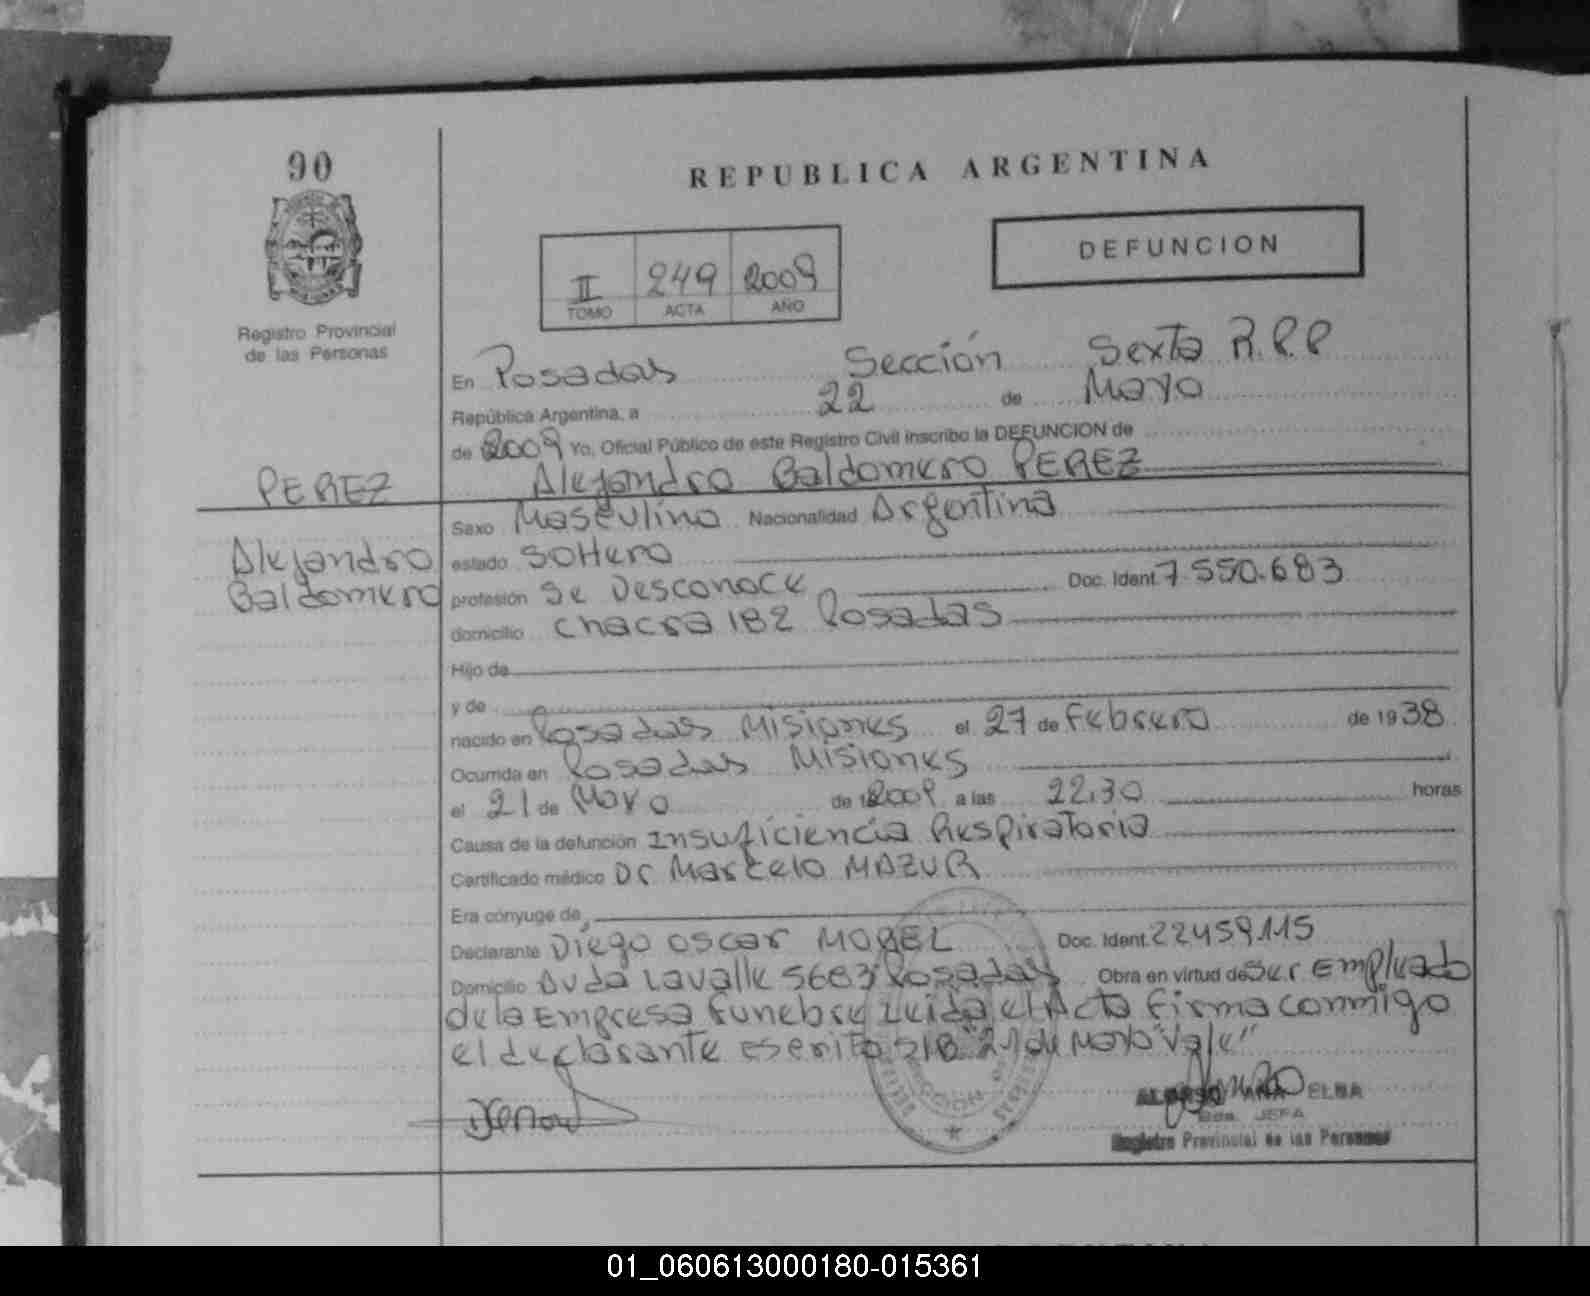 90
REPUBLICA ARGENTINA
DEFUNCION
II 249 2009
TOMO ACTA AÑO
Registro Provincial
de las Personas
En Posadas Sección Sexta R.P.P
República Argentina, a 22 de Mayo
de 2009 Yo, Oficial Público de este Registro Civil inscribo la DEFUNCION de
PEREZ
Alejandro Baldomero
Alejandro Baldomero PEREZ
Sexo Masculino Nacionalidad Argentina
estado Soltero
profesión Se Desconoce Doc. Ident. 7.550.683
domicilio Chacra 182 Posadas
Hijo de
y de
nacido en Posadas Misiones el 27 de Febrero de 1938
Ocurrida en Posadas Misiones
el 21 de Mayo de 2009 a las 22,30 horas
Causa de la defunción Insuficiencia Respiratoria
Certificado médico Dr Marcelo MAZUR
Era cónyuge de
Declarante Diego Oscar MOGEL Doc. Ident. 22459.115
Domicilio Avda Lavalle 5683 Posadas Obra en virtud de Ser Empleado
de la Empresa Funebre Leida el Acta Firma conmigo
el declarante escrito S/B "21 de Mayo" Vale"
ANA ELBA
JEFA
Registro Provincial de las Personas
01_060613000180-015361